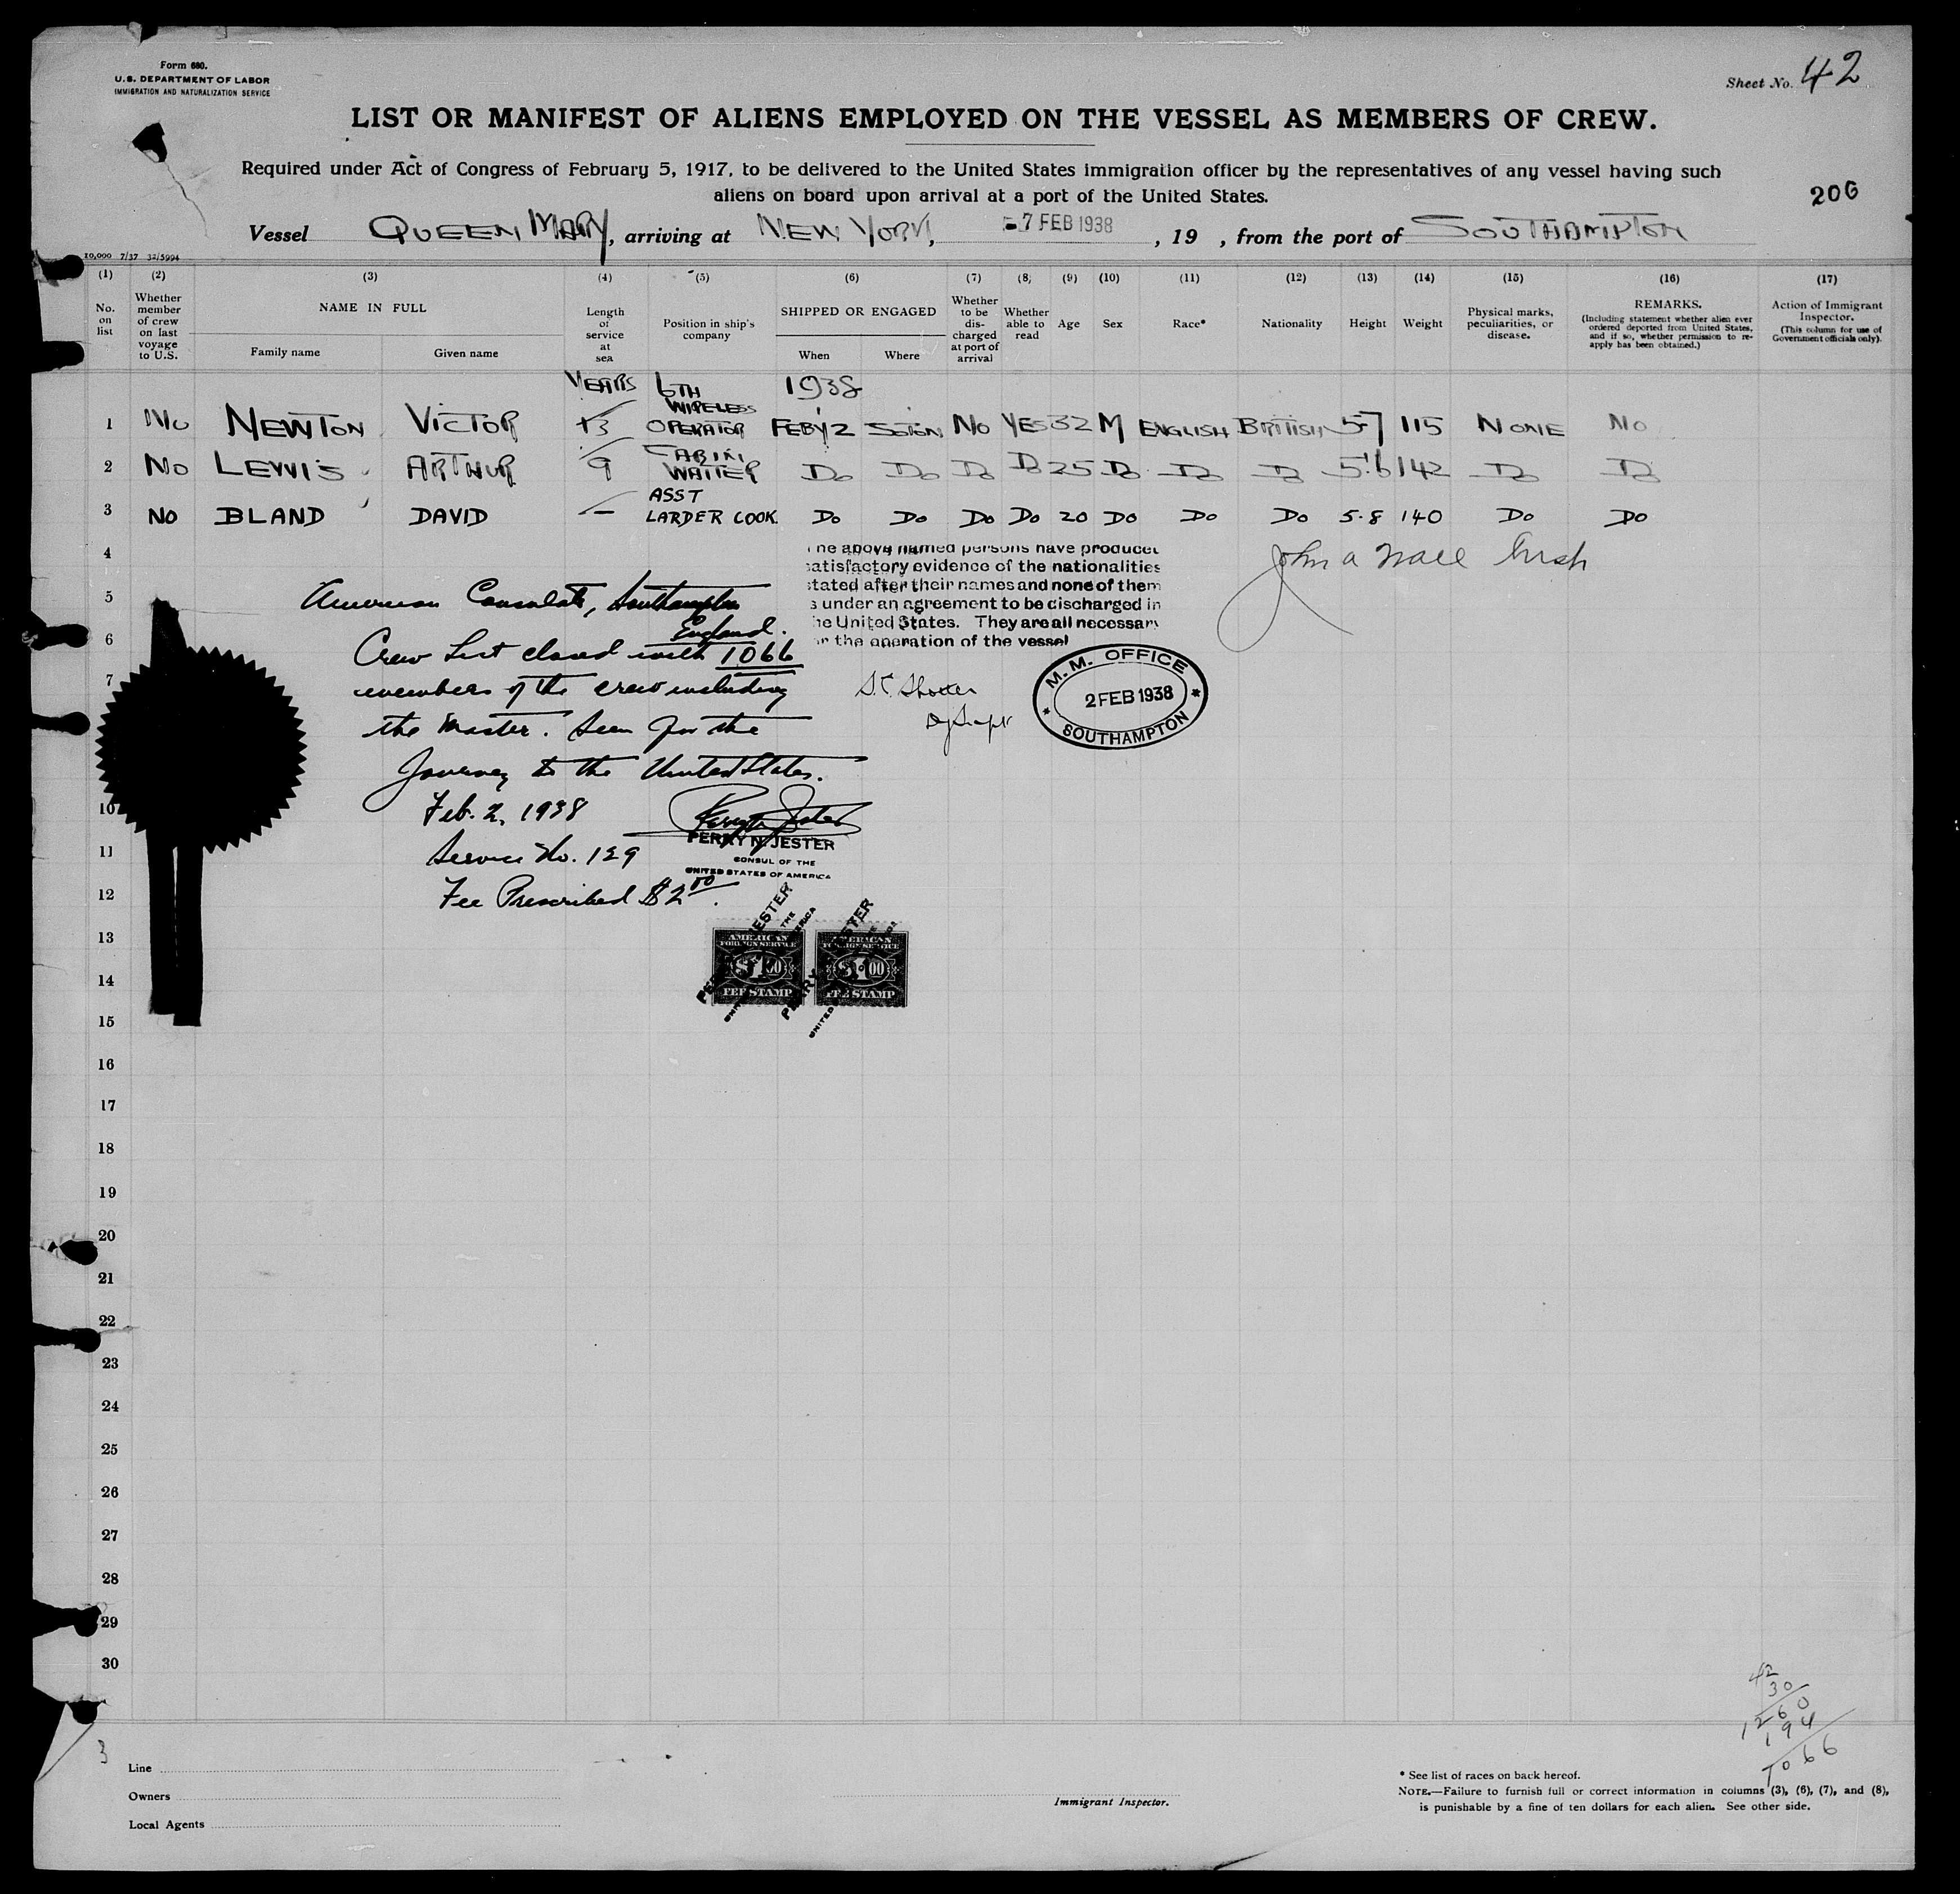 Form 680.
U.S. DEPARTMENT OF LABOR
IMMIGRATION AND NATURALIZATION SERVICE
Sheet No. 42
LIST OR MANIFEST OF ALIENS EMPLOYED ON THE VESSEL AS MEMBERS OF CREW.
Required under Act of Congress of February 5, 1917, to be delivered to the United States immigration officer by the representatives of any vessel having such
aliens on board upon arrival at a port of the United States.
206
Vessel QUEEN MARY, arriving at NEW YORK, 7 FEB 1938, 19 , from the port of SOUTHAMPTON
10,000 7/37 32/5994
(1) (2) (3) (4) (5) (6) (7) (8) (9) (10) (11) (12) (13) (14) (15) (16) (17)
No. on list
Whether member of crew on last voyage to U.S.
NAME IN FULL
Family name
Given name
Length of service at sea
Position in ship's company
SHIPPED OR ENGAGED
When
Where
Whether to be discharged at port of arrival
Whether able to read
Age
Sex
Race*
Nationality
Height
Weight
Physical marks, peculiarities, or disease.
REMARKS.
(Including statement whether alien ever ordered deported from United States, and if so, whether permission to reapply has been obtained.)
Action of Immigrant Inspector.
(This column for use of Government officials only).
YEARS 6TH 1938
WIRELESS
1 No NEWTON VICTOR 13 OPERATOR FEBY 2 SOTON No YES 32 M ENGLISH BRITISH 5-7 115 NONE No
CABIN
2 No LEWIS ARTHUR 9 WAITER Do Do Do Do 25 Do Do Do 5'6 142 Do Do
ASST
3 NO BLAND DAVID — LARDER COOK. Do Do Do Do 20 Do Do Do 5.8 140 Do Do
4
5
6
7
10
11
12
13
14
15
16
17
18
19
20
21
22
23
24
25
26
27
28
29
30
The above named persons have produced
satisfactory evidence of the nationalities
stated after their names and none of them
is under an agreement to be discharged in
the United States. They are all necessary
for the operation of the vessel
John a
American Consulate, Southampton
England.
Crew List closed with 1066
members of the crew including
the Master. Seen for the
Journey to the United States.
Feb. 2, 1938
Service No. 129
Fee Prescribed $2.00.
M.M. OFFICE
2 FEB 1938
SOUTHAMPTON
PERRY N. JESTER
CONSUL OF THE
UNITED STATES OF AMERICA
AMERICAN
FOREIGN SERVICE
$1.00
FEE STAMP
AMERICAN
FOREIGN SERVICE
$1.00
FEE STAMP
42
30
1260
194
1066
3
Line
Owners
Local Agents
Immigrant Inspector.
* See list of races on back hereof.
NOTE.—Failure to furnish full or correct information in columns (3), (6), (7), and (8),
is punishable by a fine of ten dollars for each alien. See other side.